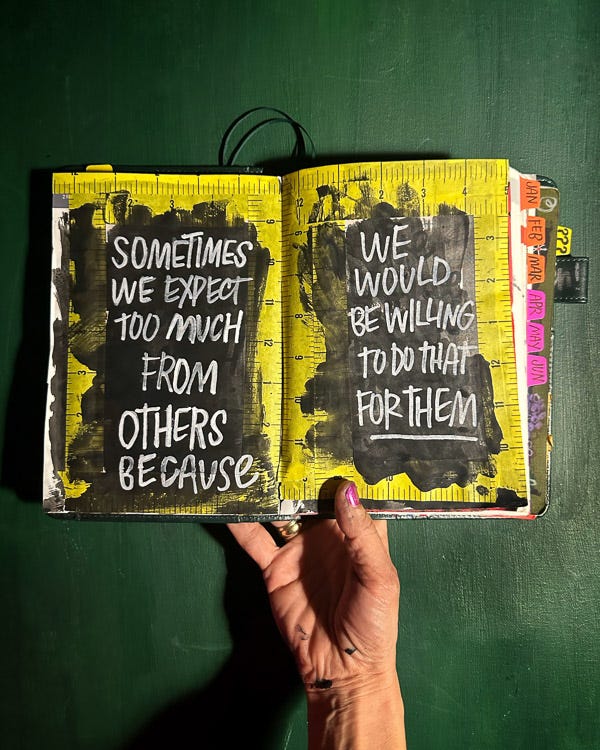 SOMETIMES
WE EXPECT
TOO MUCH
FROM
OTHERS
BECAUSE
WE
WOULD
BE WILLING
TO DO THAT
FOR THEM
JAN
FEB
MAR
APR
MAY
JUN
???